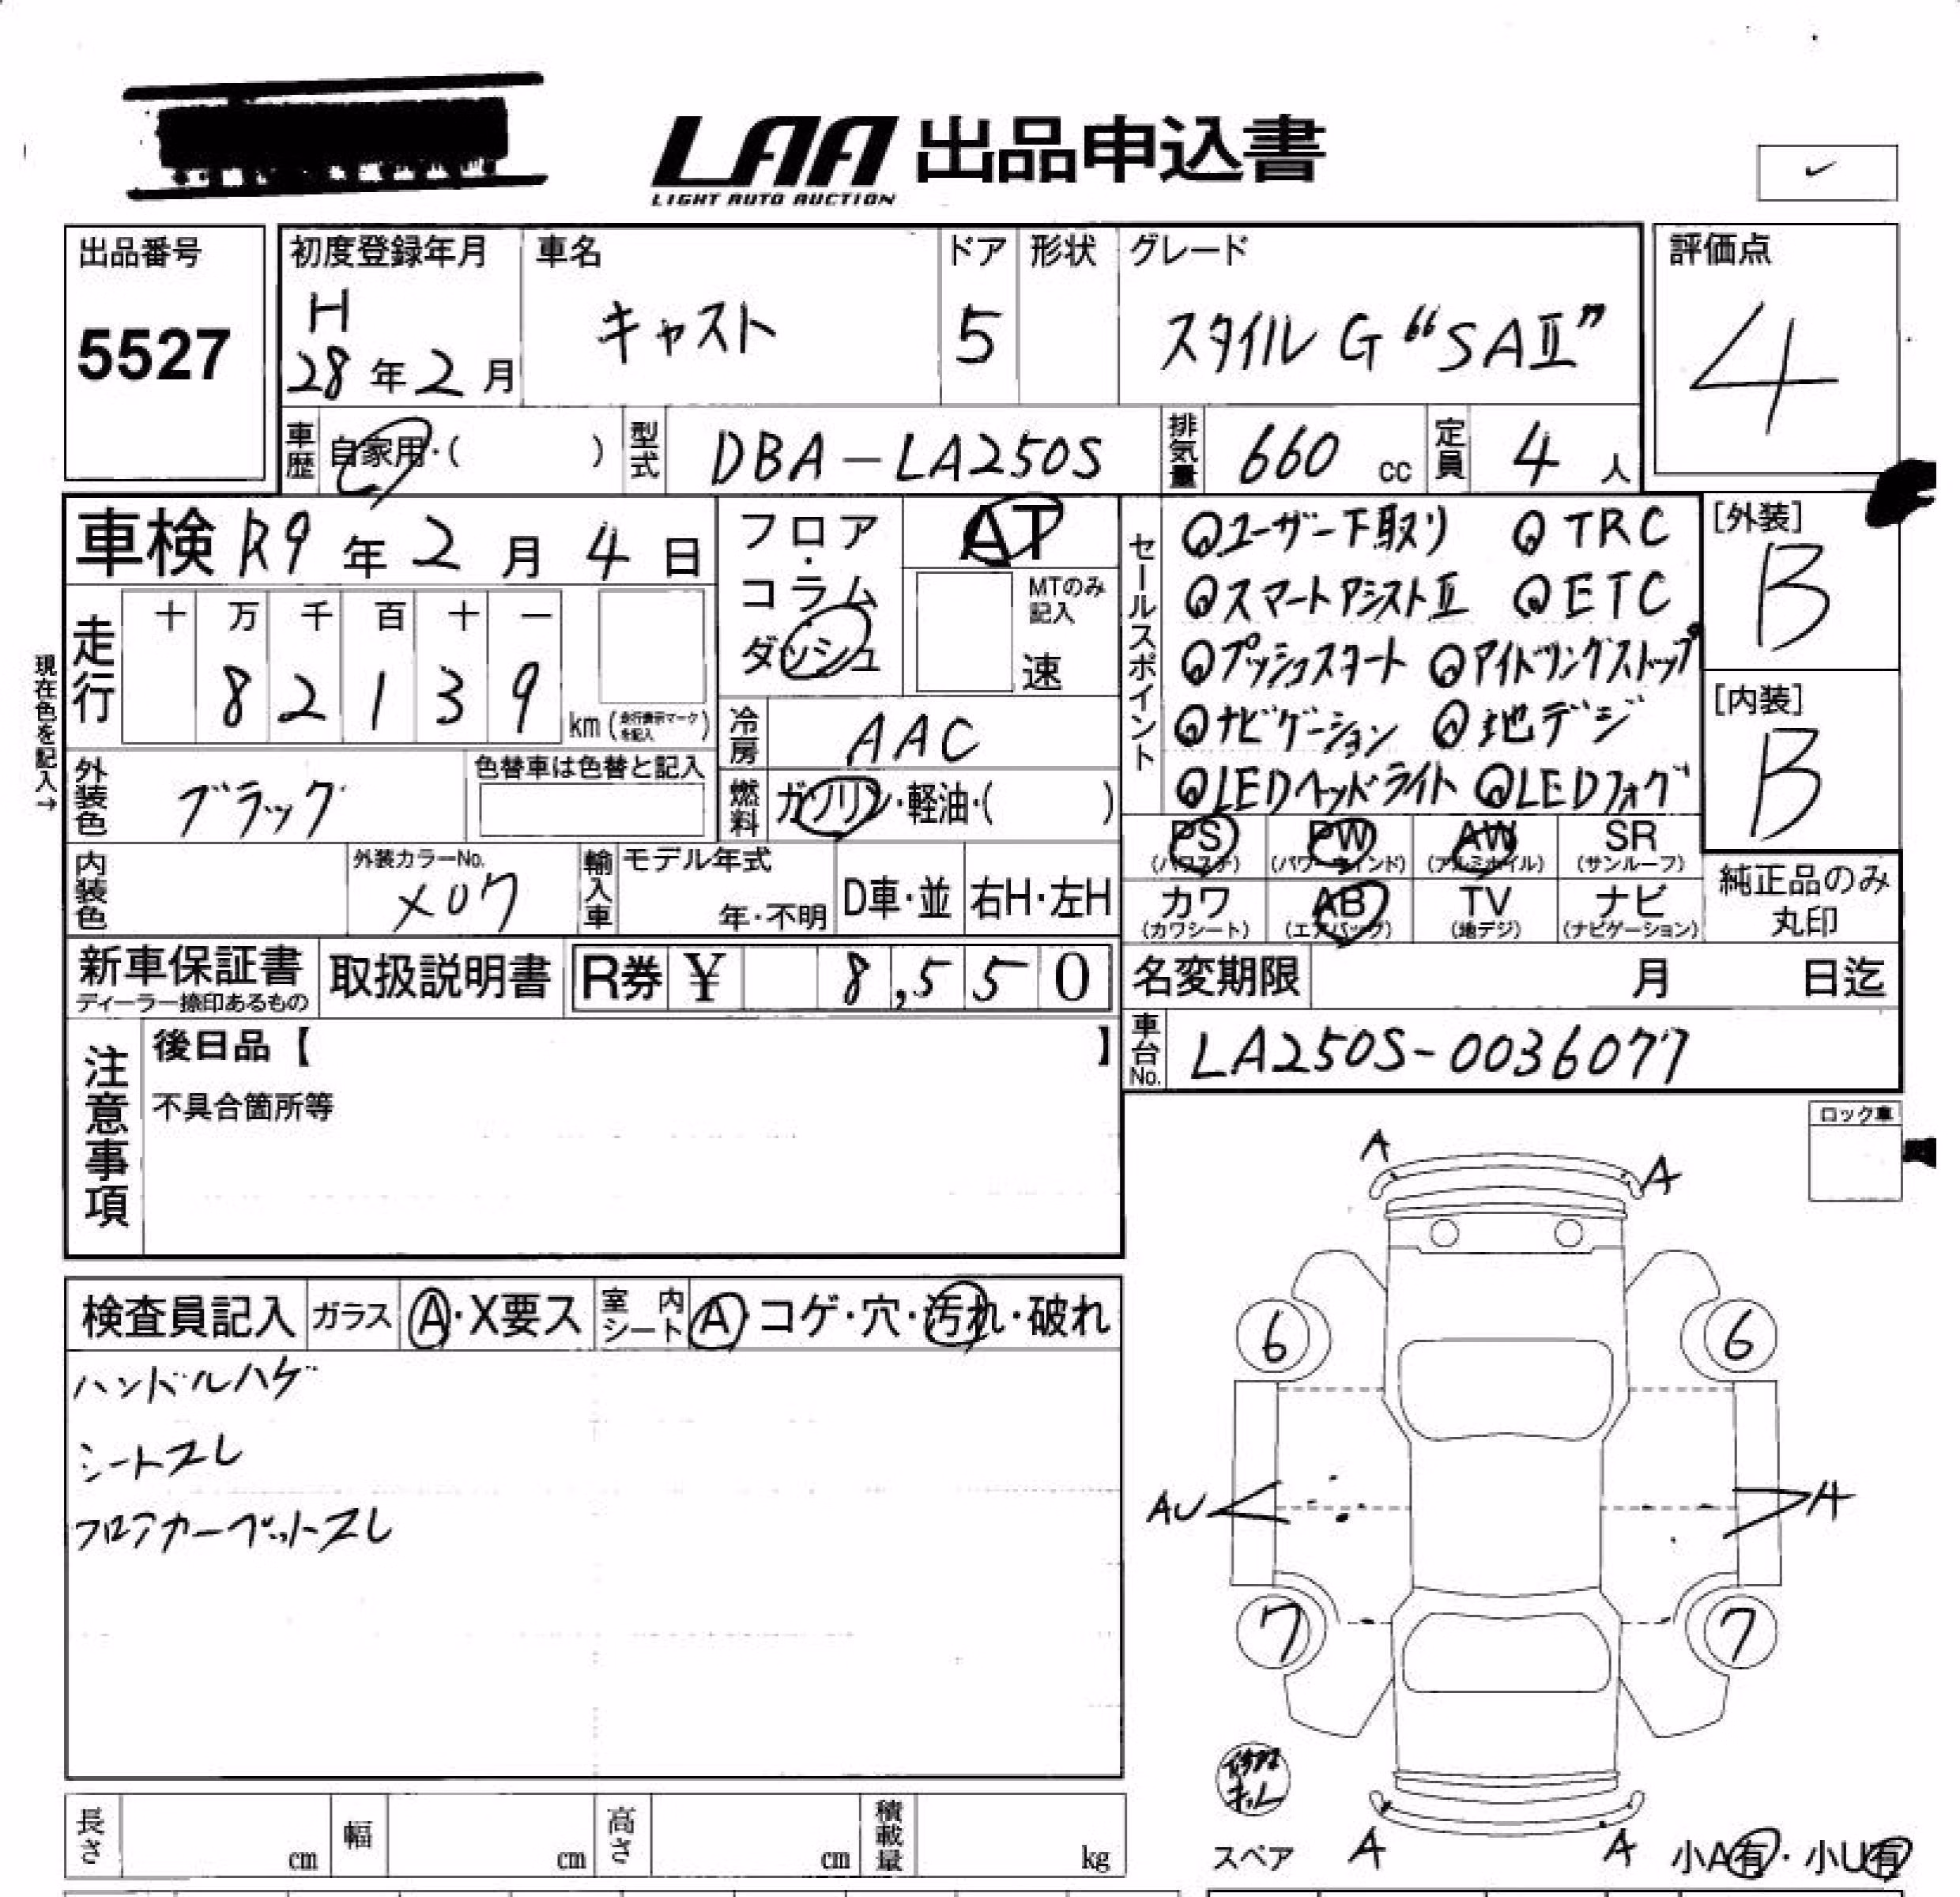 LAA 出品申込書
LIGHT AUTO AUCTION
✓
出品番号
5527
初度登録年月
H
28年2月
車名
キャスト
ドア
5
形状
グレード
スタイルG“SAⅡ”
評価点
4
車歴
自家用・( )
型式
DBA-LA250S
排気量
660 cc
定員
4人
車検 R9年2月4日
フロア・コラム
ダッシュ
AT
MTのみ記入
速
セールスポイント
Qユーザー下取り QTRC
QスマートアシストⅡ QETC
Qプッシュスタート Qアイドリングストップ
Qナビゲーション Q地デジ
QLEDヘッドライト QLEDフォグ
[外装]
B
[内装]
B
現在色を記入→
走行
十 万 千 百 十 一
8 2 1 3 9
km(走行表示マークを記入)
冷房
AAC
外装色
ブラック
色替車は色替と記入
燃料
ガソリン・軽油・( )
内装色
外装カラーNo.
X07
輸入車
モデル年式
年・不明
D車・並
右H・左H
PS
(パワステ)
PW
(パワーウィンド)
AW
(アルミホイル)
SR
(サンルーフ)
カワ
(カワシート)
AB
(エアバッグ)
TV
(地デジ)
ナビ
(ナビゲーション)
純正品のみ
丸印
新車保証書
ディーラー捺印あるもの
取扱説明書
R券 ¥ 8,550
名変期限
月 日迄
車台No.
LA250S-0036077
注意事項
後日品【 】
不具合箇所等
ロック車
検査員記入
ガラス
A・X要ス
室内シート
A・コゲ・穴・汚れ・破れ
ハンドルハゲ
シートスレ
フロアカーペットスレ
A
A
6
6
AU
A
7
7
スペア
A
A
小A有・小U有
長さ
cm
幅
cm
高さ
cm
積載量
kg